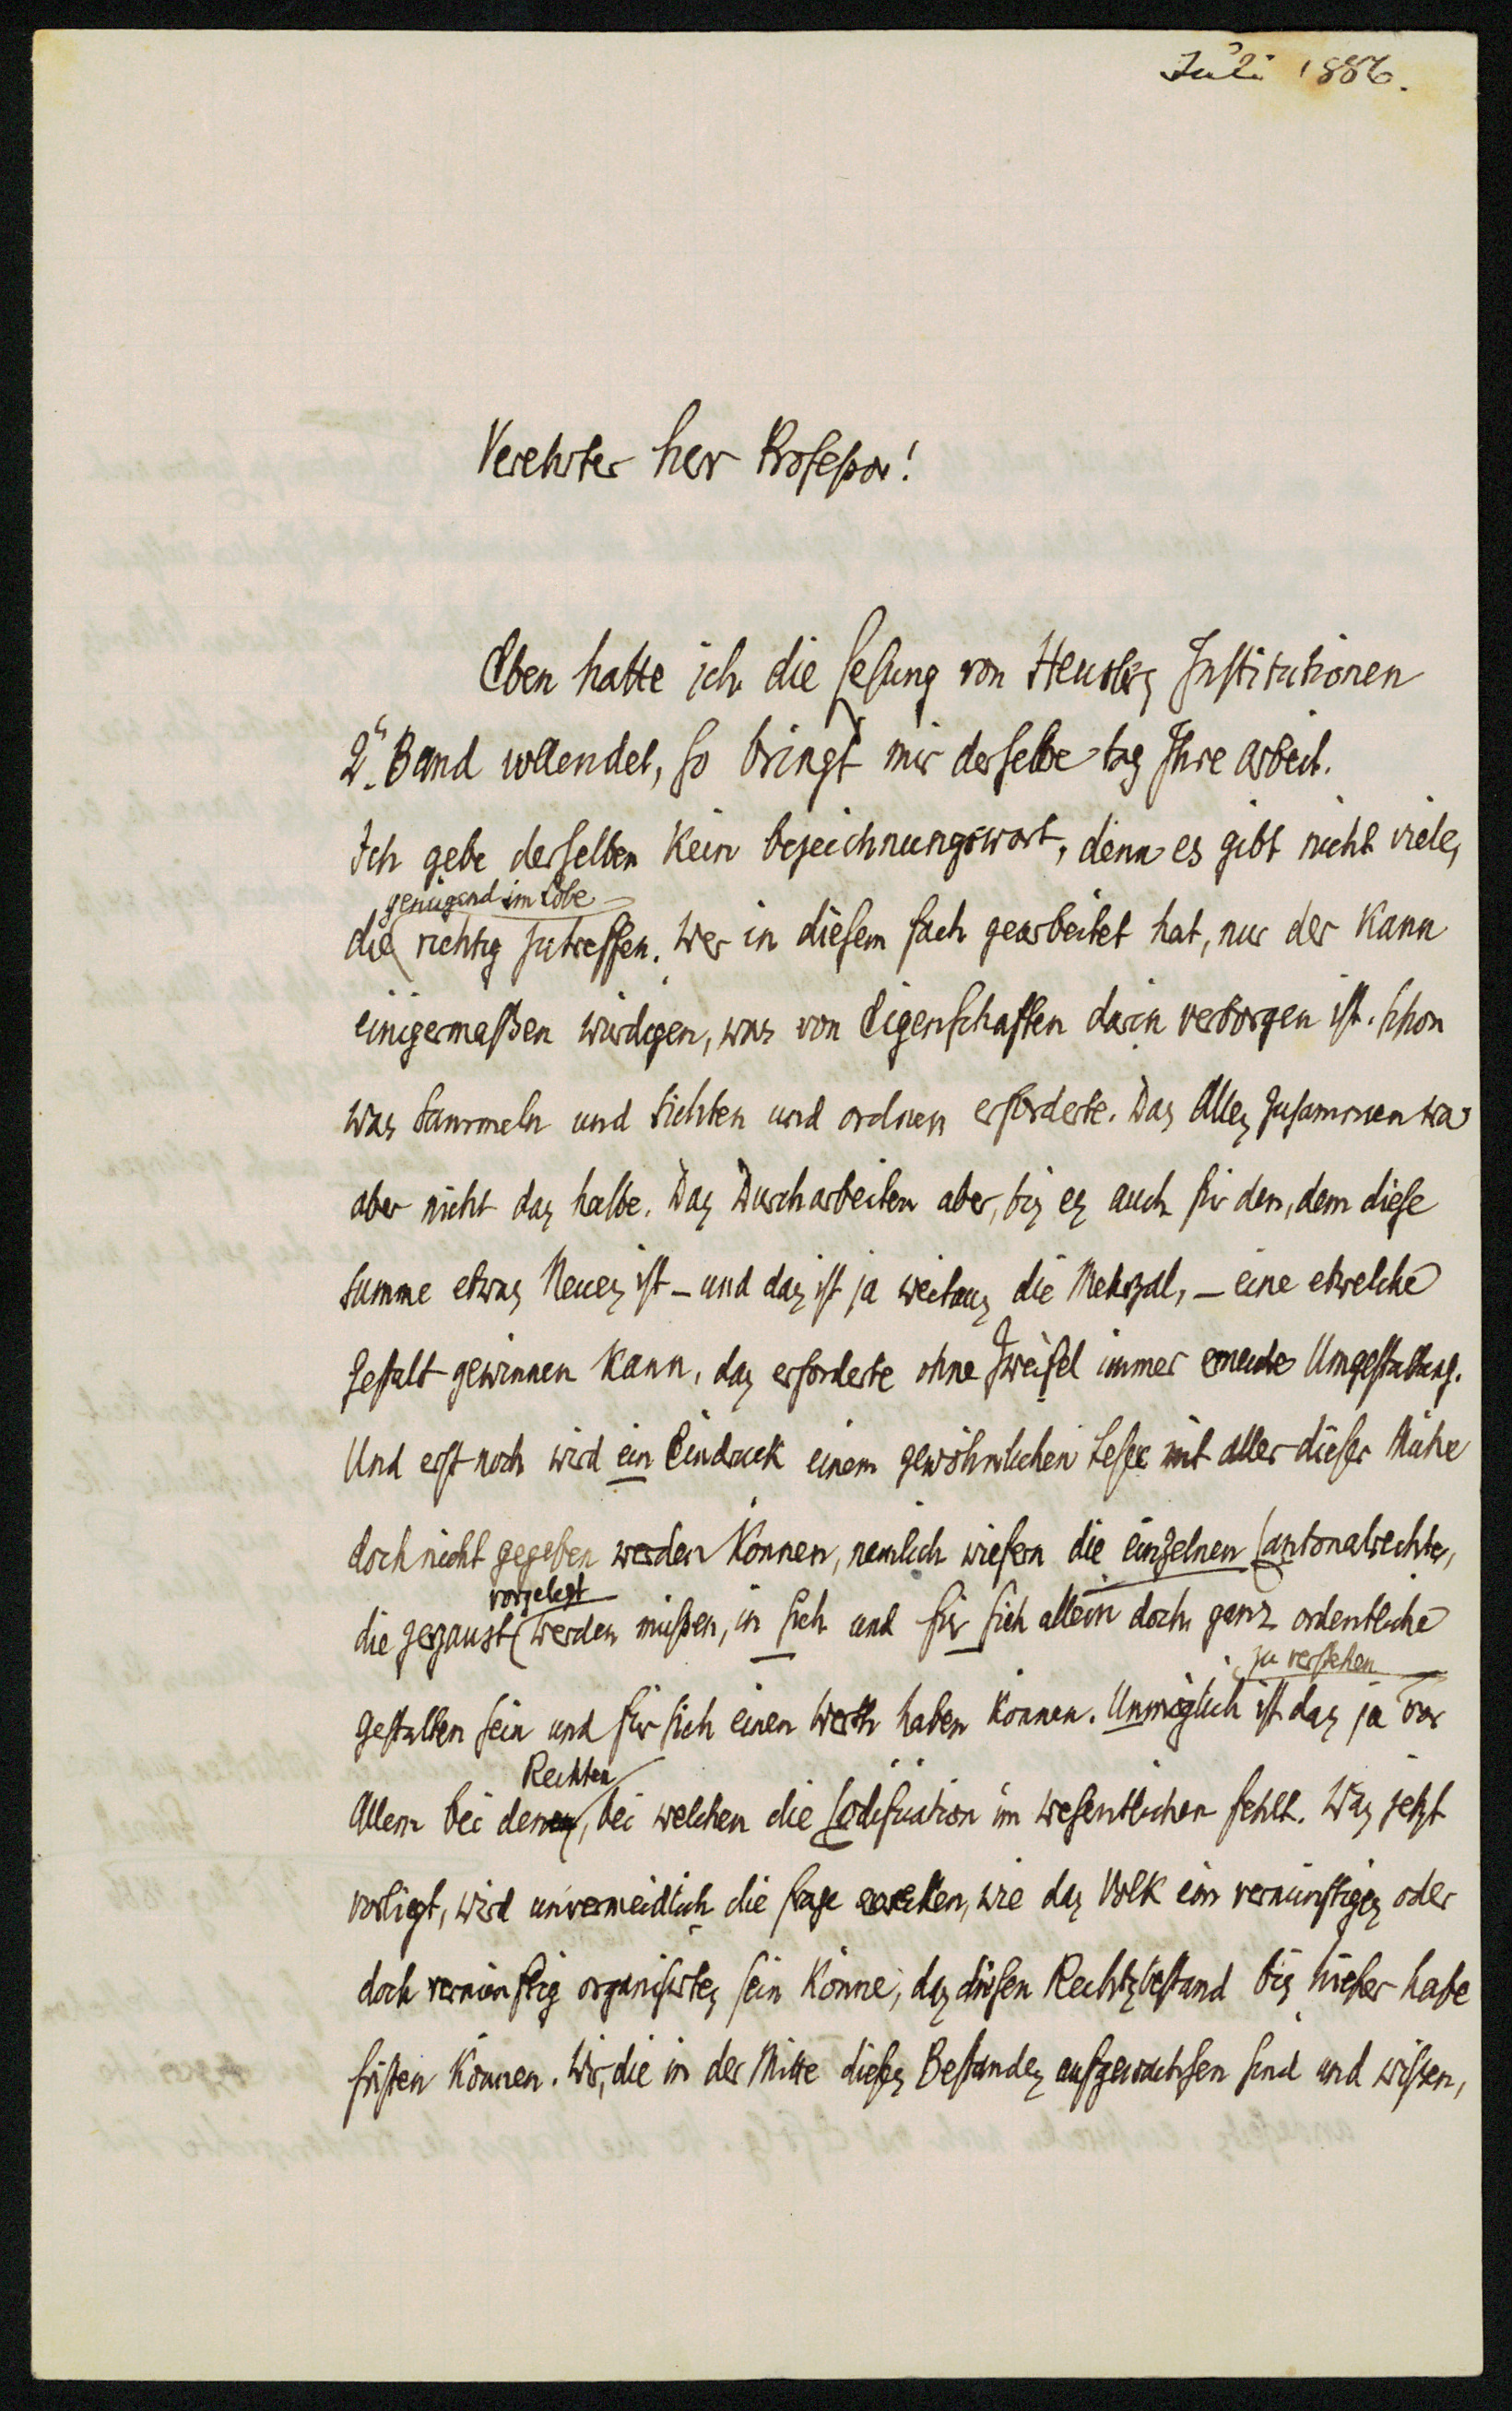 Juli 1886.
Verehrter Herr Professor!
Eben hatte ich die Lesung von Heuslers Institutionen
2ʳ Band vollendet, so bringt mir derselbe tag Ihre arbeit.
Ich gebe derselben kein bezeichnungswort, denn es gibt nicht viele,
genügend im Lobe
die richtig zutreffen. Wer in diesem fach gearbeitet hat, nur der kann
einigermaßen würdigen, was von Eigenschaften darin verborgen ist. Schon
was Sammeln und Sichten und ordnen erforderte. Das Alles zusammen war
aber nicht das halbe. Das Durcharbeiten aber, bis es auch für den, dem diese
Summe etwas Neues ist – und das ist ja weitaus die Mehrzal, – eine etwelche
gestalt gewinnen kann, das erforderte ohne Zweifel immer erneute Umgestaltung.
Und erst noch wird ein Eindruck einem gewöhnlichen Leser mit aller dieser Mühe
doch nicht gegeben werden können, nemlich wiefern die einzelnen Cantonalrechte,
vorgelegt
die zerzaust werden müssen, in sich und für sich allein doch ganz ordentliche
zu verstehen
gestalten sein und für sich einen Werth haben können. Unmöglich ist das ja vor
Rechten
Allem bei denen, bei welchen die Codification im wesentlichen fehlt. Was jetzt
vorliegt, wird unvermeidlich die frage erwecken, wie das Volk ein vernünftiges oder
doch vernünftig organisirtes sein könne, das diesen Rechtsbestand bis hieher habe
fristen können. Wir, die in der Mitte dieses Bestandes aufgewachsen sind und wissen,